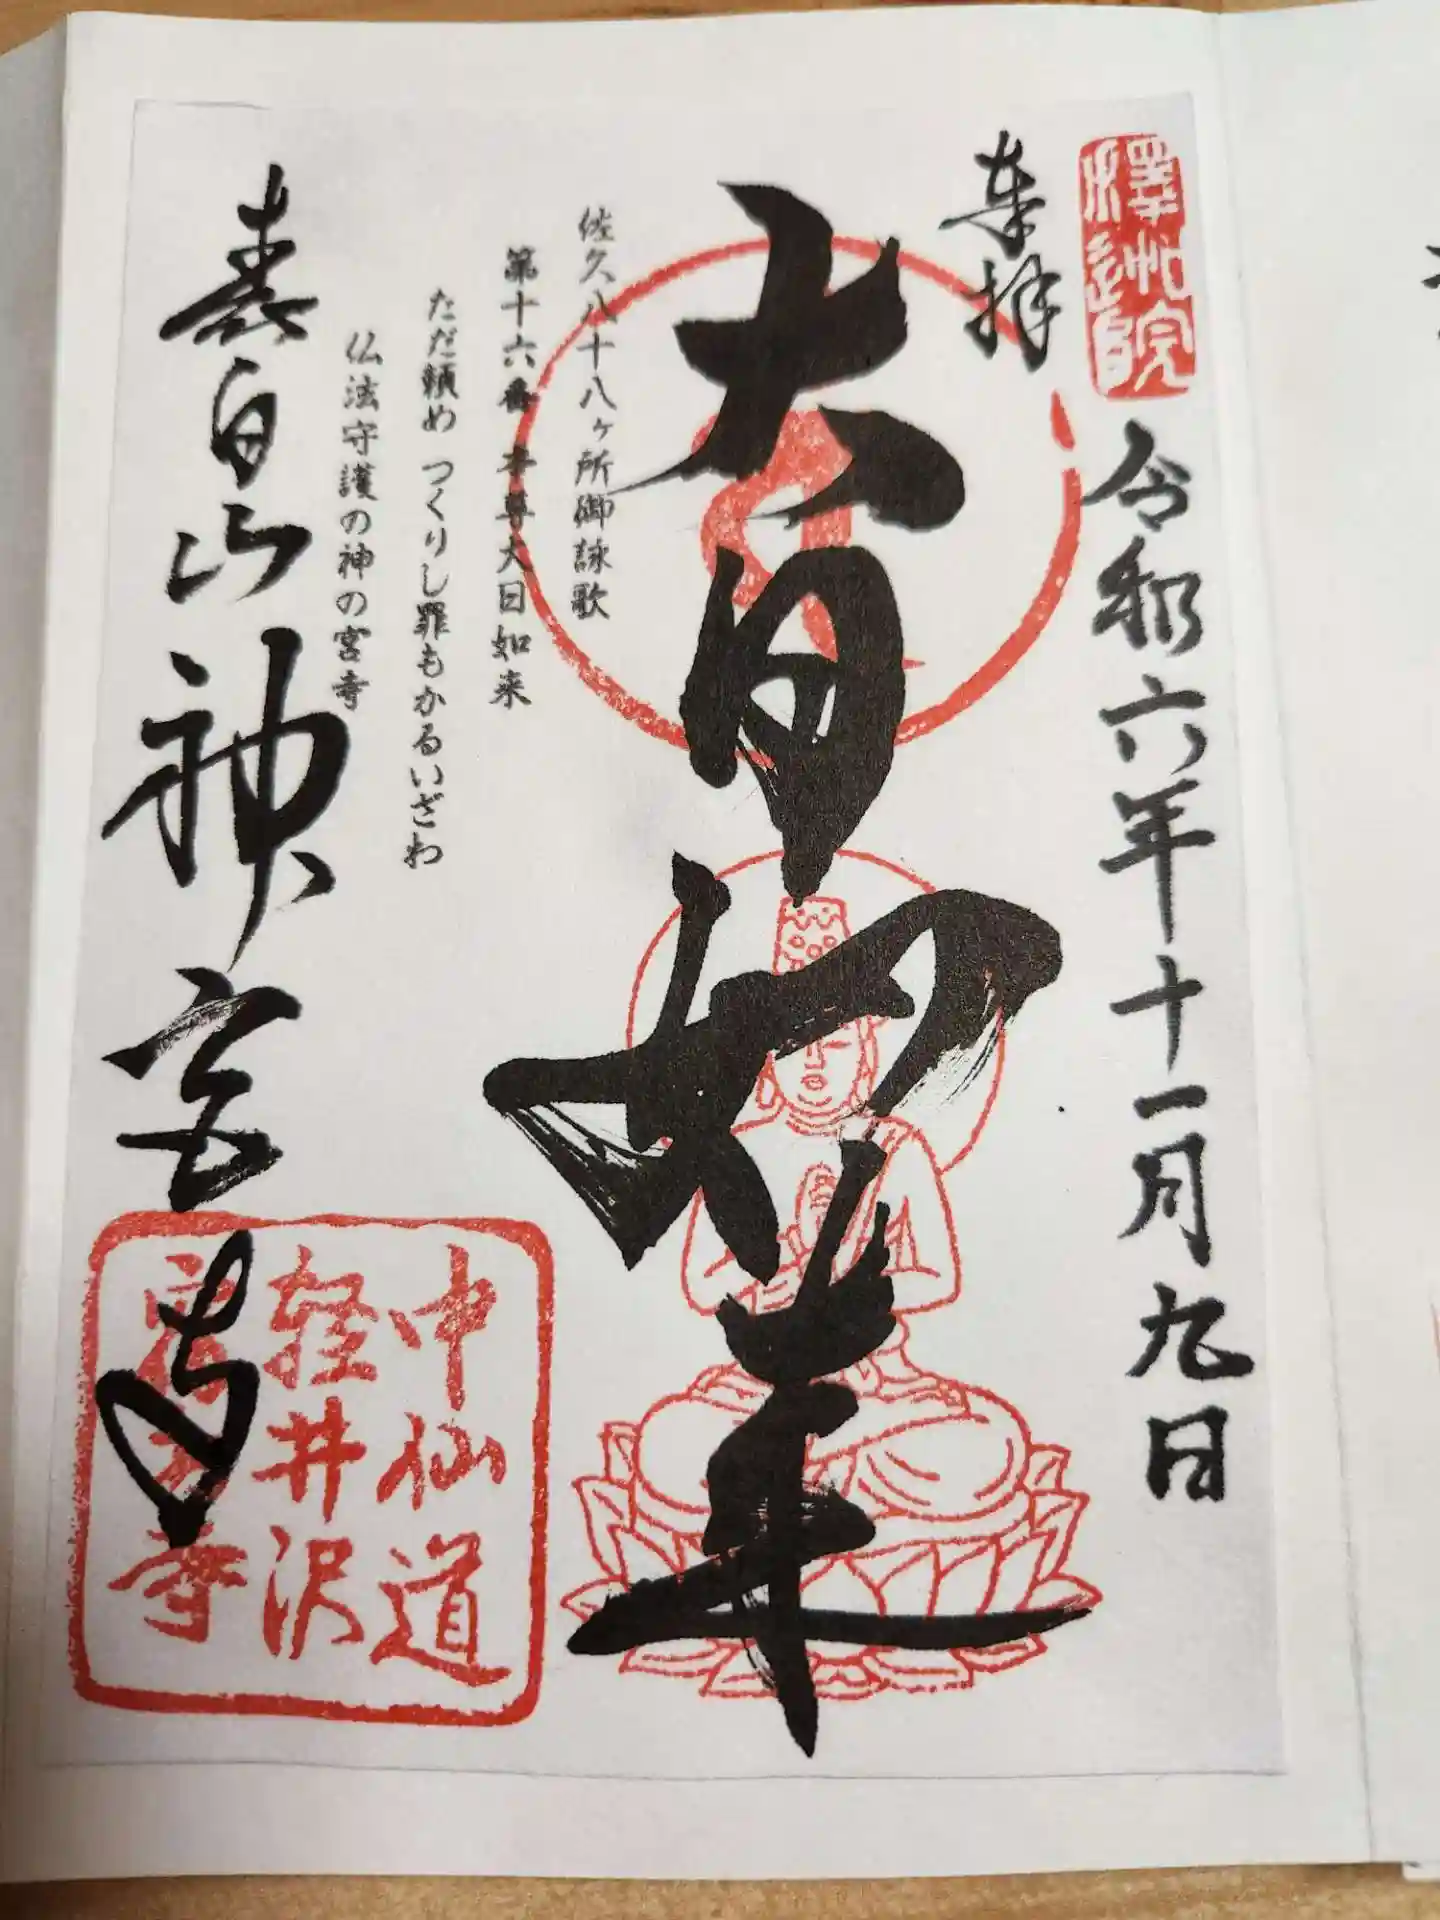 奉拝
令和六年十一月九日
大日如来
佐久八十八ヶ所御詠歌
第十六番 本尊大日如来
ただ頼め つくりし罪もかるいざわ
仏法守護の神の宮寺
表白山神宮寺
中仙道
軽井沢
神宮寺